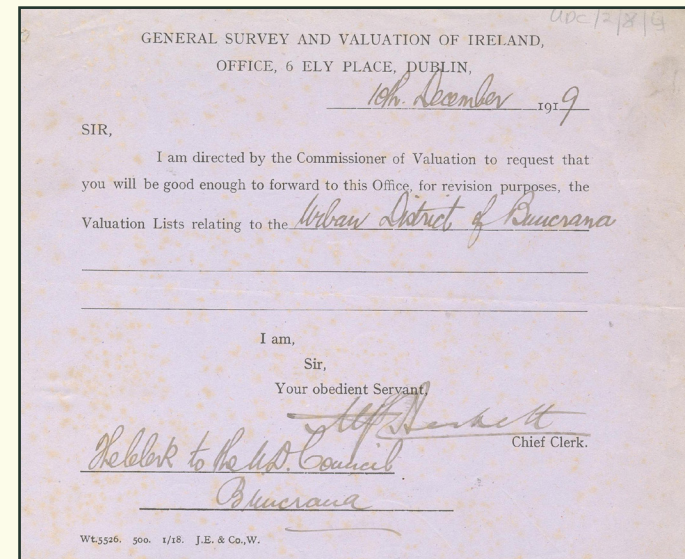 UDC/2/8/9
GENERAL SURVEY AND VALUATION OF IRELAND,
OFFICE, 6 ELY PLACE, DUBLIN,
10th. December 1919
SIR,
I am directed by the Commissioner of Valuation to request that
you will be good enough to forward to this Office, for revision purposes, the
Valuation Lists relating to the Urban District of Buncrana
I am,
Sir,
Your obedient Servant,
Chief Clerk.
The Clerk to the U.D. Council
Buncrana
Wt.5526. 500. 1/18. J.E. & Co.,W.